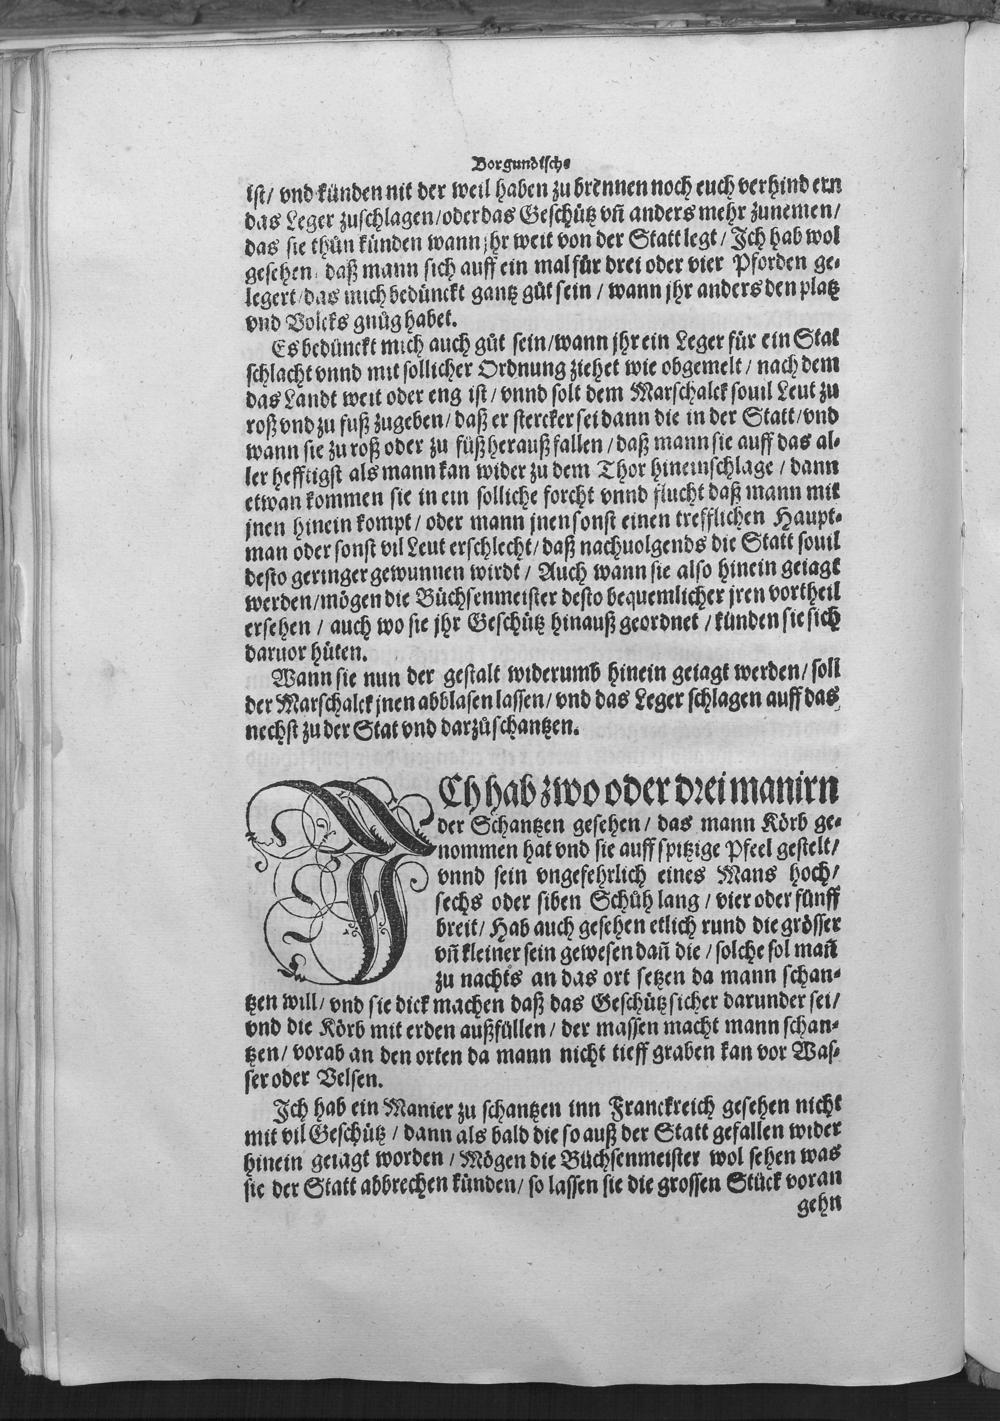 Borgundische
ist/ vnd künden nit der weil haben zu brennen noch euch verhindern
das Leger zuschlagen/oder das Geschütz vñ anders mehr zunemen/
das sie thůn künden wann jhr weit von der Statt legt/ Ich hab wol
gesehen/ daß mann sich auff ein mal für drei oder vier Pforden ge-
legert/das mich bedünckt gantz gůt sein/ wann jhr anders den platz
vnd Volcks gnůg habet.
Es bedünckt mich auch gůt sein/wann jhr ein Leger für ein Stat
schlacht vnnd mit sollicher Ordnung ziehet wie obgemelt/ nach dem
das Landt weit oder eng ist/ vnnd solt dem Marschalck souil Leut zu
roß vnd zu fuß zugeben/ daß er stercker sei dann die in der Statt/vnd
wann sie zu roß oder zu fůß herauß fallen/ daß mann sie auff das al-
ler hefftigst als mann kan wider zu dem Thor hineinschlage/ dann
etwan kommen sie in ein solliche forcht vnnd flucht daß mann mit
jnen hinein kompt/ oder mann jnen sonst einen trefflichen Haupt-
man oder sonst vil Leut erschlecht/ daß nachuolgends die Statt souil
desto geringer gewunnen wirdt/ Auch wann sie also hinein geiagt
werden/mögen die Büchsenmeister desto bequemlicher jren vortheil
ersehen/ auch wo sie jhr Geschütz hinauß geordnet/ künden sie sich
daruor hüten.
Wann sie nun der gestalt widerumb hinein geiagt werden/ soll
der Marschalck jnen abblasen lassen/ vnd das Leger schlagen auff das
nechst zu der Stat vnd darzů schantzen.
ICh hab zwo oder drei manirn
der Schantzen gesehen/ das mann Körb ge-
nommen hat vnd sie auff spitzige Pfeel gestelt/
vnnd sein vngefehrlich eines Mans hoch/
sechs oder siben Schůh lang/ vier oder fünff
breit/ Hab auch gesehen etlich rund die grösser
vñ kleiner sein gewesen dañ die/ solche sol mañ
zu nachts an das ort setzen da mann schan-
tzen will/ vnd sie dick machen daß das Geschütz sicher darunder sei/
vnd die Körb mit erden außfüllen/ der massen macht mann schan-
tzen/ vorab an den orten da mann nicht tieff graben kan vor Was-
ser oder Velsen.
Ich hab ein Manier zu schantzen inn Franckreich gesehen nicht
mit vil Geschütz/ dann als bald die so auß der Statt gefallen wider
hinein geiagt worden/ Mögen die Büchsenmeister wol sehen was
sie der Statt abbrechen künden/ so lassen sie die grossen Stück voran
gehn